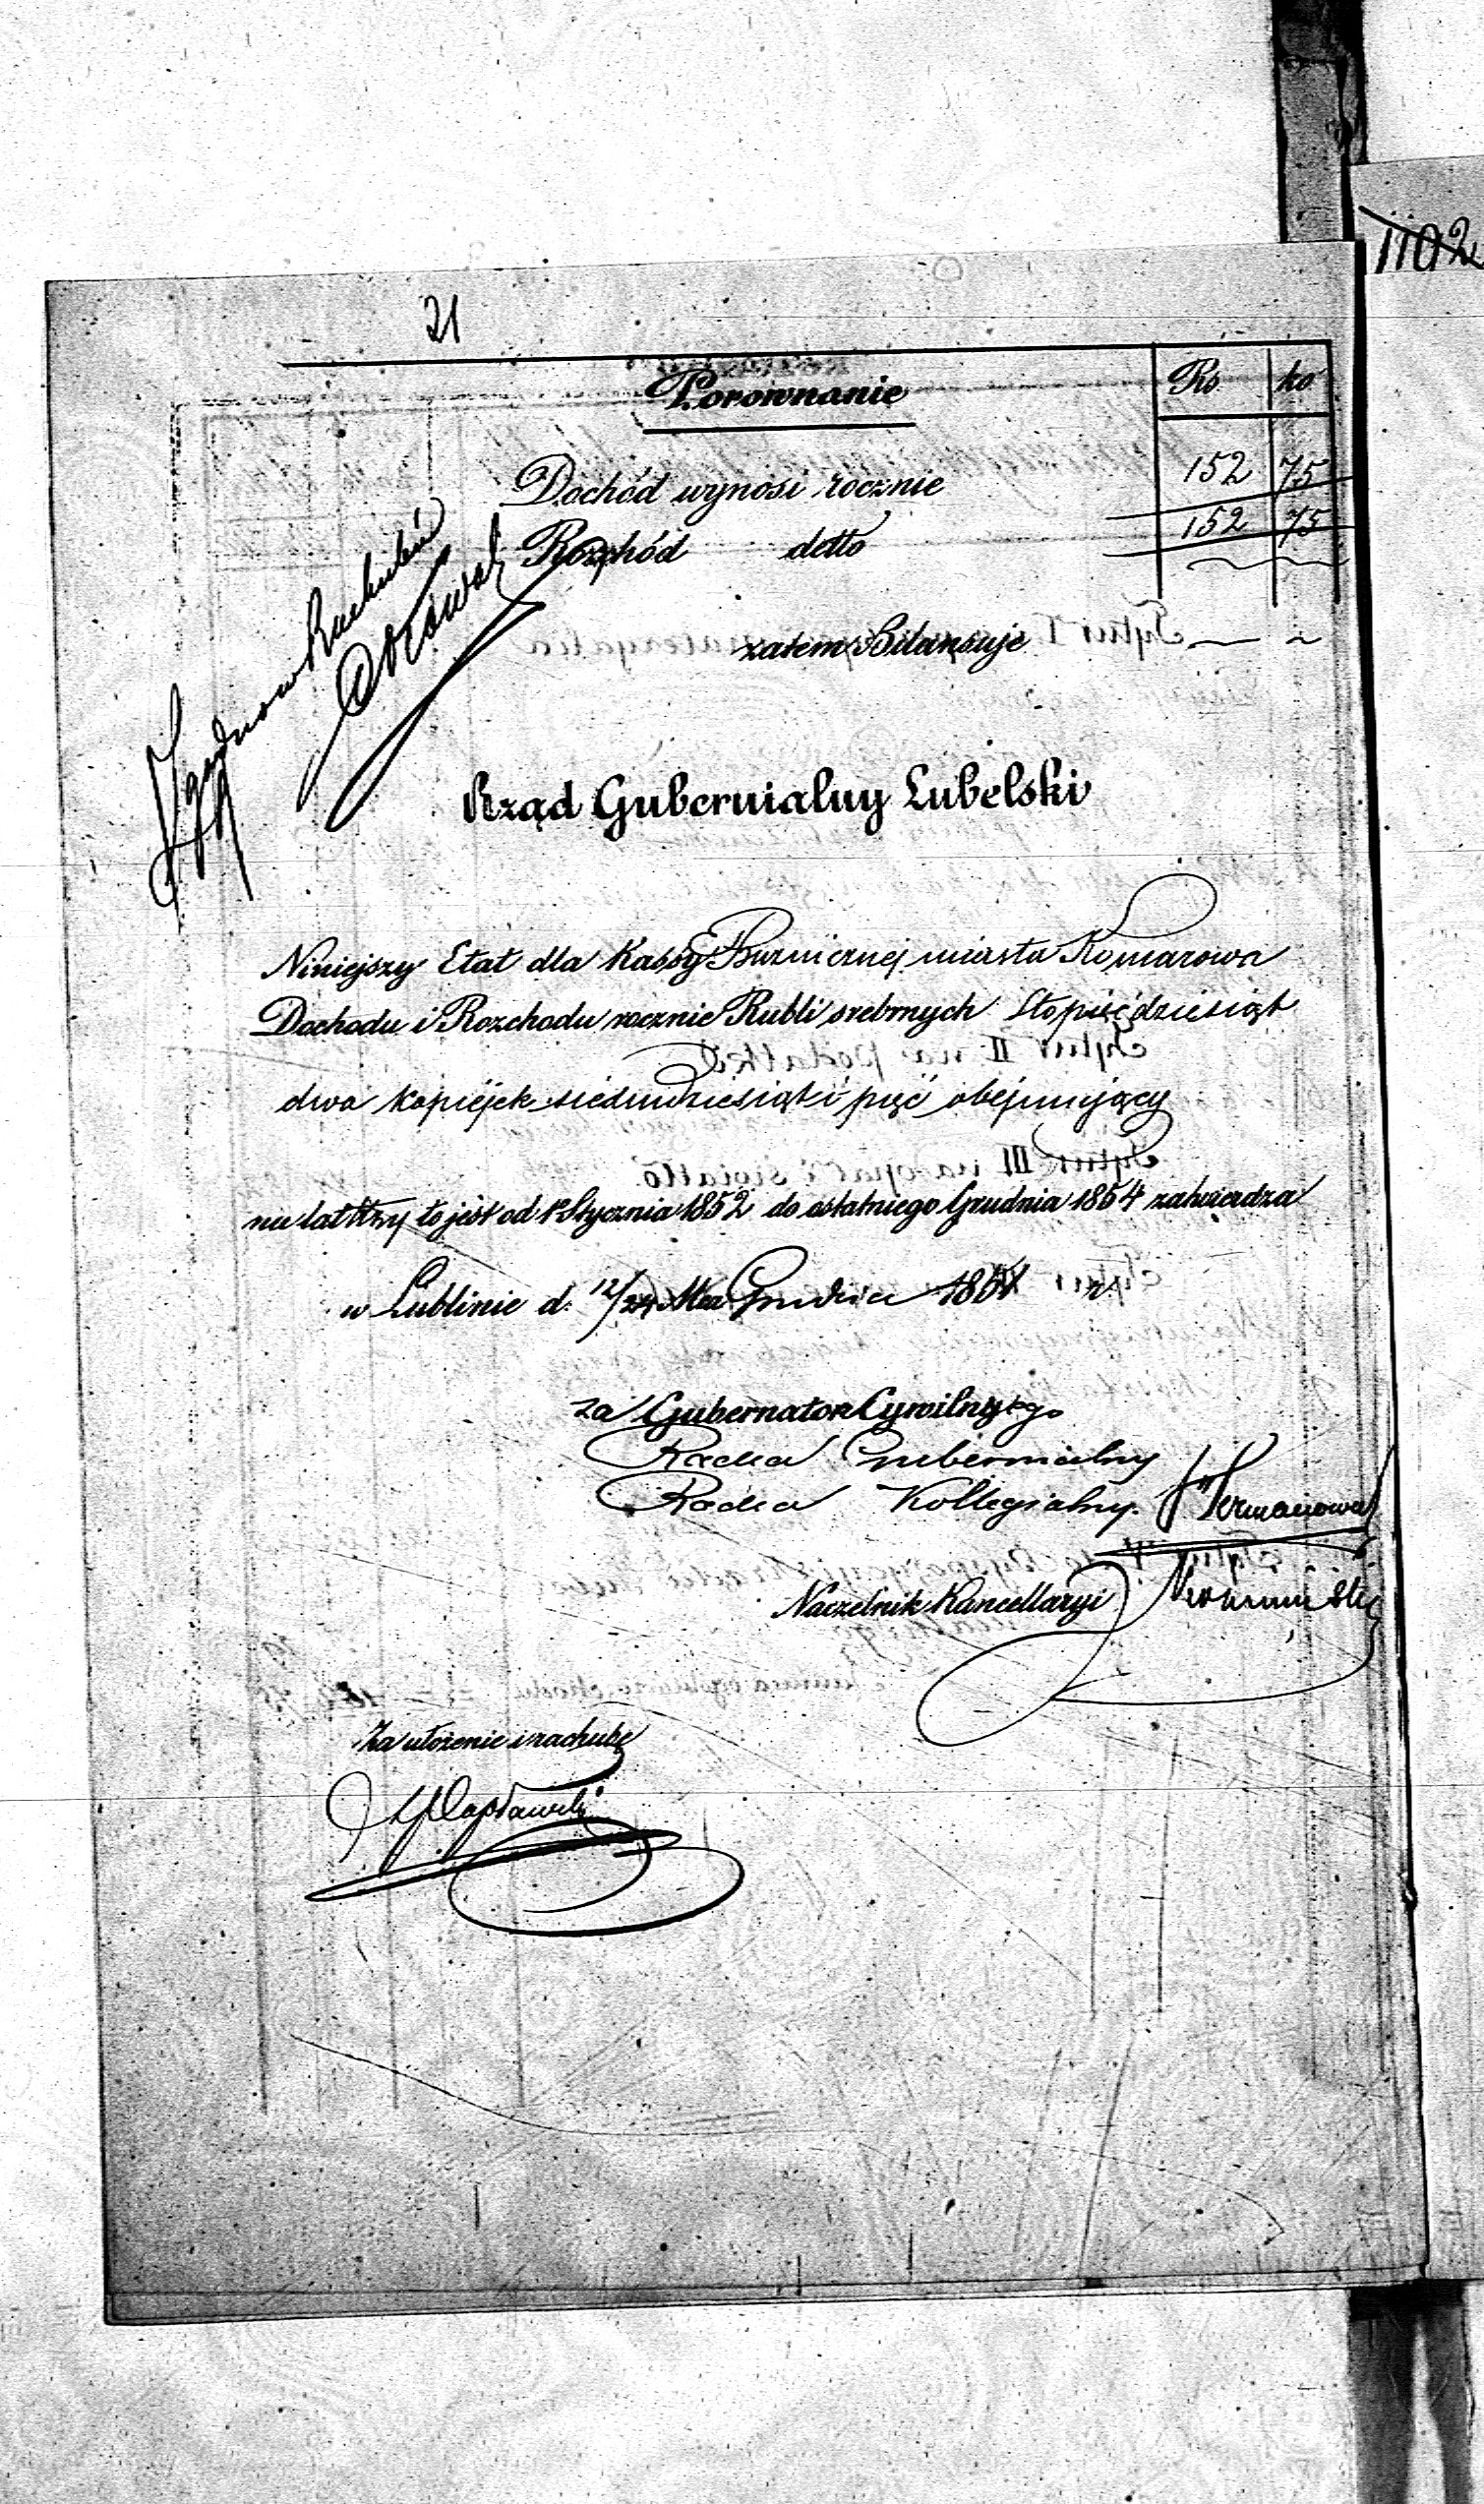 1102
21
Porównanie Rs ko
Dochód wynosi rocznie 152 75
Rozchód detto 152 75
zatem Bilansuje
Zgodno w
Rząd Gubernialny Lubelski
Niniejszy Etat dla Kassy Bużnicznej miasta Komarowa
Dochodu i Rozchodu rocznie Rubli srebrnych Stopięćdziesiąt
dwa kopiéjek siedmdziesiąt i pięć obejmujący
na lat trzy to jest od 1º Stycznia 1852 do ostatniego Grudnia 1854 zatwierdza
w Lublinie d. 12/24 Mca Grudnia 1851 r.
za Gubernatora Cywilnego
Radca Gubernialny
Radca Kollegialny.
Naczelnik Kancellaryi
Za ułożenie i rachubę